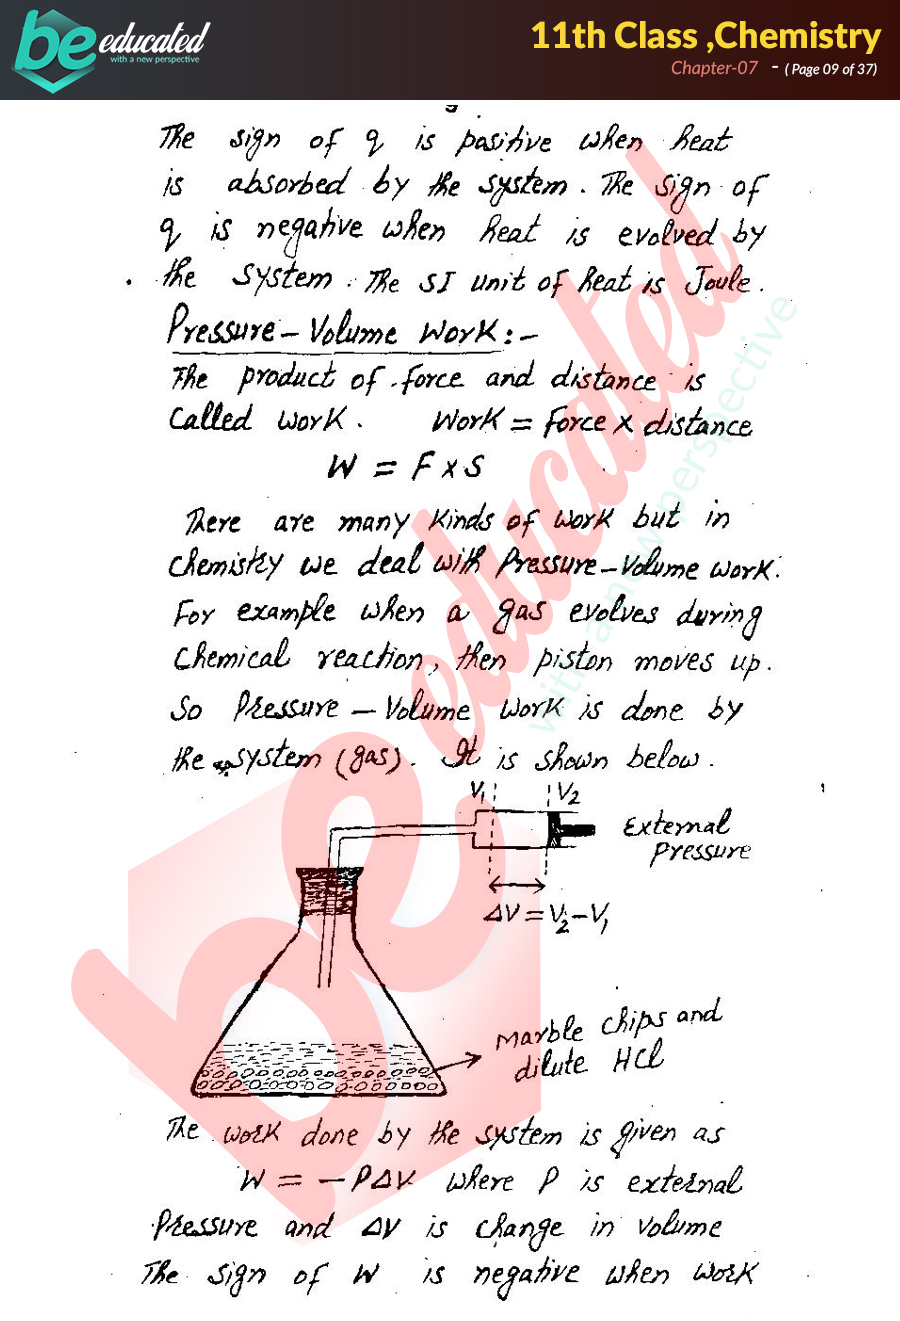 be educated
with a new perspective
11th Class ,Chemistry
Chapter-07 - ( Page 09 of 37)
The sign of q is positive when heat
is absorbed by the system. The sign of
q is negative when heat is evolved by
the system. The SI unit of heat is Joule.
Pressure-Volume Work:-
The product of force and distance is
called work. Work = Force x distance
W = F x S
There are many kinds of work but in
chemistry we deal with Pressure-Volume work.
For example when a gas evolves during
chemical reaction, then piston moves up.
So Pressure-Volume work is done by
the system (gas). It is shown below.
V1 V2
External
Pressure
ΔV = V2-V1
Marble chips and
dilute HCl
The work done by the system is given as
W = -PΔV where P is external
Pressure and ΔV is change in volume
The sign of W is negative when work
be educated
with a new perspective